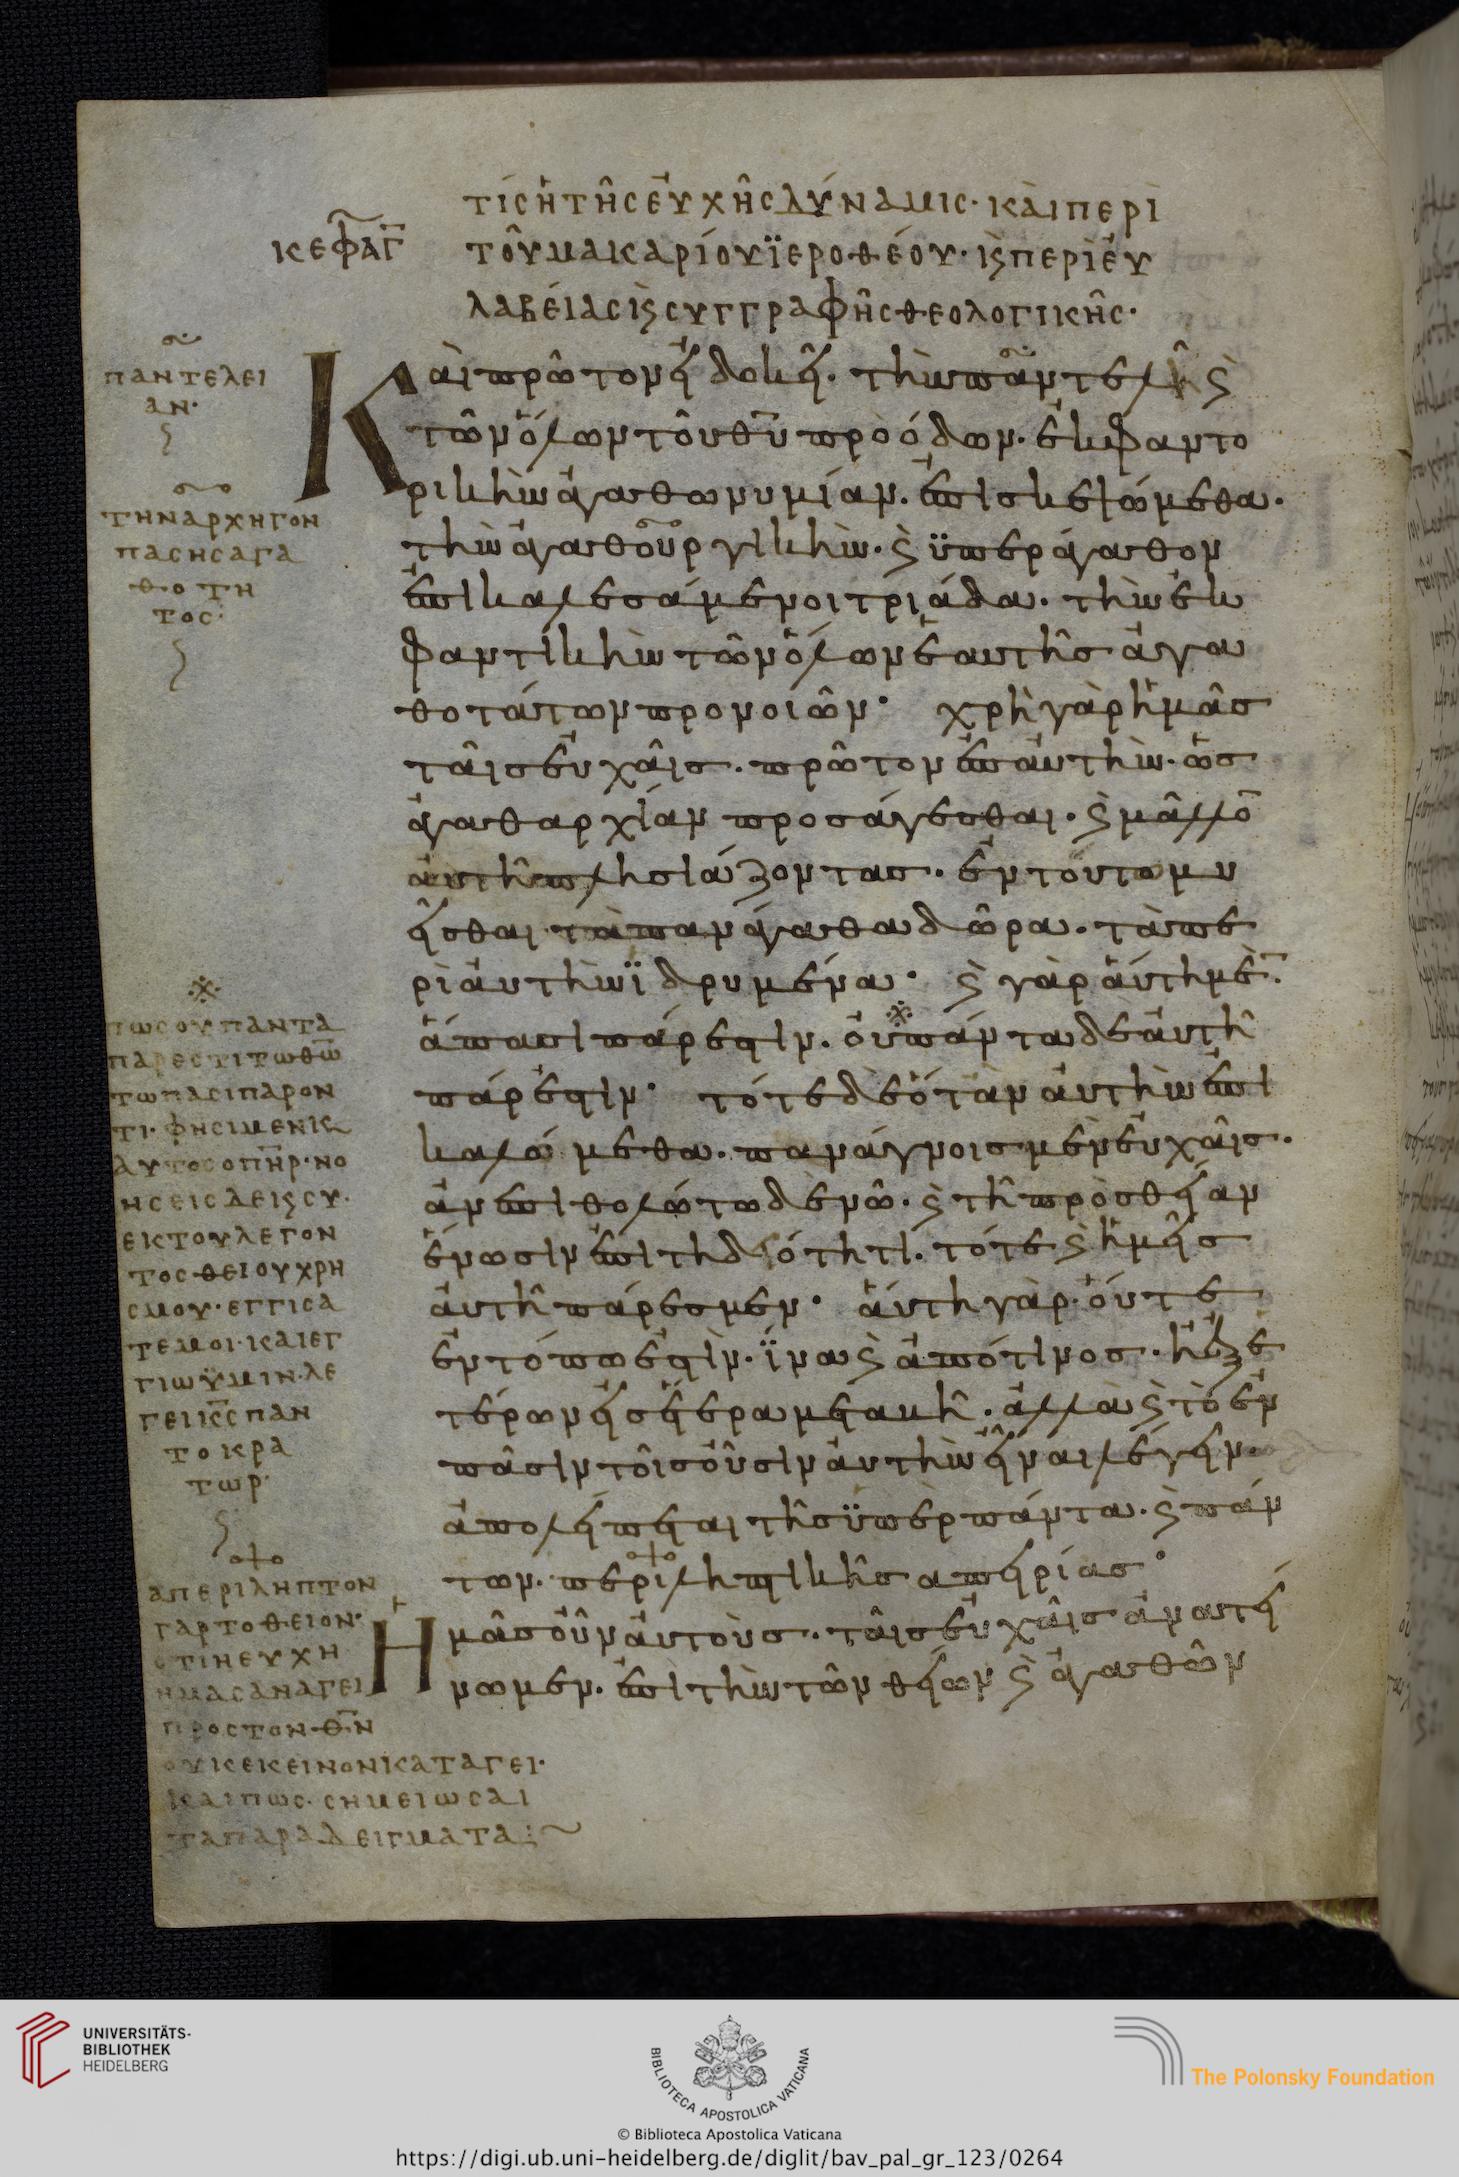 ΤΊϹ Ἡ ΤΗ͂Ϲ ΕὐΧΗ͂Ϲ ΔΎΝΑΜΙϹ· ΚΑῚ ΠΕΡῚ
ΚΕΦΑ Γ̄
ΤΟΥ͂ ΜΑΚΑΡΊΟΥ ΪΕΡΟΘΈΟΥ· Κ̀ ΠΕΡῚ Εὐ
ΛΑΒΕΊΑϹ Κ̀ ϹΥΓΓΡΑΦΗ͂Ϲ ΘΕΟΛΟΓΙΚΗ͂Ϲ·
Καὶ πρῶτον εἰ δοκεῖ· τὴν παντελῆ ϗ̀
τῶν ὅλων τοῦ θ̅υ̅ προόδων· ἐκφαντο
ρικὴν ἀγαθωνυμίαν· ἐπισκεψώμεθα·
τὴν ἀγαθουργικὴν· ϗ̀ ϋπεράγαθον
ἐπικαλεσάμενοι τριάδα· τὴν ἐκ
φαντικὴν τῶν ὅλων ἑαυτῆς ἀγα
θοτάτων προνοιῶν· χρὴ γὰρ ἡμᾶς
ταῖς εὐχαῖς· πρῶτον ἐπ' αὐτὴν· ὡς
ἀγαθαρχίαν προσάγεσθαι· ϗ̀ μᾶλλο̅
αὐτῆ πλησιάζοντας· ἐν τούτω μυ
εῖσθαι τὰ πανάγαθα δῶρα· τὰ πε
ρὶ αὐτὴν ϊδρυμένα· ϗ̀ γὰρ αὐτὴ μὲ̅·
ἅπασι πάρεστιν· οὐ πάντα δὲ αὐτῆ
πάρεστιν· τότε δὲ ὅταν αὐτὴν ἐπι
καλώμεθα· πανάγνοις μὲν εὐχαῖς·
ἀνεπιθολώτω δὲ νῶ· ϗ̀ τῆ πρὸς θείαν
ἕνωσιν ἐπιτηδειότητι· τότε ϗ̀ ἡμεῖς
αὐτῆ πάρεσμεν· αὕτη γὰρ· οὔτε
ἐν τόπω ἐστὶν· ϊνα ϗ̀ ἀπῆ τινος· ἢ ἐξ ἑ
τέρων εἰς ἕτερα μεταβῆ· ἀλλὰ ϗ̀ τὸ ἐν
πᾶσιν τοῖς οὖσιν αὐτὴν εἶναι λέγειν·
ἀπολείπεται τῆς ϋπὲρ πάντα· ϗ̀ πάν
των· περιληπτικῆς ἀπειρίας·
Ἡμᾶς οὖν αὐτοὺς· ταῖς εὐχαῖς ἀνατεί
νωμεν· ἐπὶ τὴν τῶν θείων ϗ̀ ἀγαθῶν
ΠΑΝΤΕΛΕΙ
ΑΝ·
ΤΗΝ ΑΡΧΗΓΟΝ
ΠΑϹΗϹ ΑΓΑ
ΘΟΤΗ
ΤΟϹ·
ΠΩϹ ΟΥ ΠΑΝΤΑ
ΠΑΡΕϹΤΙ ΤΩ ΘΩ̅
ΤΩ ΠΑϹΙ ΠΑΡΟΝ
ΤΙ· ΦΗϹΙ ΜΕΝ Κ
ΑΥΤΟϹ Ο ΠΗ̅Ρ· ΝΟ
ΗϹΕΙϹ ΔΕ Κ ϹΥ·
ΕΚ ΤΟΥ ΛΕΓΟΝ
ΤΟϹ ΘΕΙΟΥ ΧΡΗ
ϹΜΟΥ· ΕΓΓΙϹΑ
ΤΕ ΜΟΙ· ΚΑΙ ΕΓ
ΓΙΩ ΫΜΙΝ· ΛΕ
ΓΕΙ Κ̅Ϲ̅ ΠΑΝ
ΤΟΚΡΑ
ΤΩΡ·
ΑΠΕΡΙΛΗΠΤΟΝ
ΓΑΡ ΤΟ ΘΕΙΟΝ·
ΟΤΙ Η ΕΥΧΗ
ΗΜΑϹ ΑΝΑΓΕΙ
ΠΡΟϹ ΤΟΝ Θ̅Ν̅
ΟΥΚ ΕΚΕΙΝΟΝ ΚΑΤΑΓΕΙ·
ΚΑΙ ΠΩϹ· ϹΗΜΕΙΩϹΑΙ
ΤΑ ΠΑΡΑΔΕΙΓΜΑΤΑ:~
UNIVERSITÄTS-
BIBLIOTHEK
HEIDELBERG
BIBLIOTECA APOSTOLICA VATICANA
The Polonsky Foundation
© Biblioteca Apostolica Vaticana
https://digi.ub.uni-heidelberg.de/diglit/bav_pal_gr_123/0264